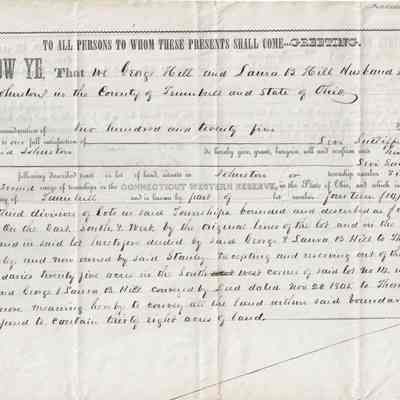 TO ALL PERSONS TO WHOM THESE PRESENTS SHALL COME...GREETING.
OW YE, That We George Hill and Laura B Hill Husband
Johnston in the County of Trumbull and State of Ohio
onsideration of two hundred and twenty five
to our full satisfaction of Levi Sutliff
id Johnston do hereby give, grant, bargain, sell and confirm unto
Levi
following described tract or lot of land, situate in Johnston or township
Second range of townships in the CONNECTICUT WESTERN RESERVE, in the State of Ohio, and which is
of Trumbull and is known by part of lot number fourteen (14)
third division of lots in said Township bounded and described as fo
On the East South & West by the original lines of the lot and on the
land in said lot heretofore deeded by said George & Laura B Hill to Th
by, and now owned by said Stanley Excepting and reserving out of the
daries twenty five acres in the South west corner of said lot No 14
and George & Laura B. Hill conveyed by deed dated Nov 20 18 to Thom
more meaning hereby to convey all the land within said boundar
posed to contain thirty eight acres of land.